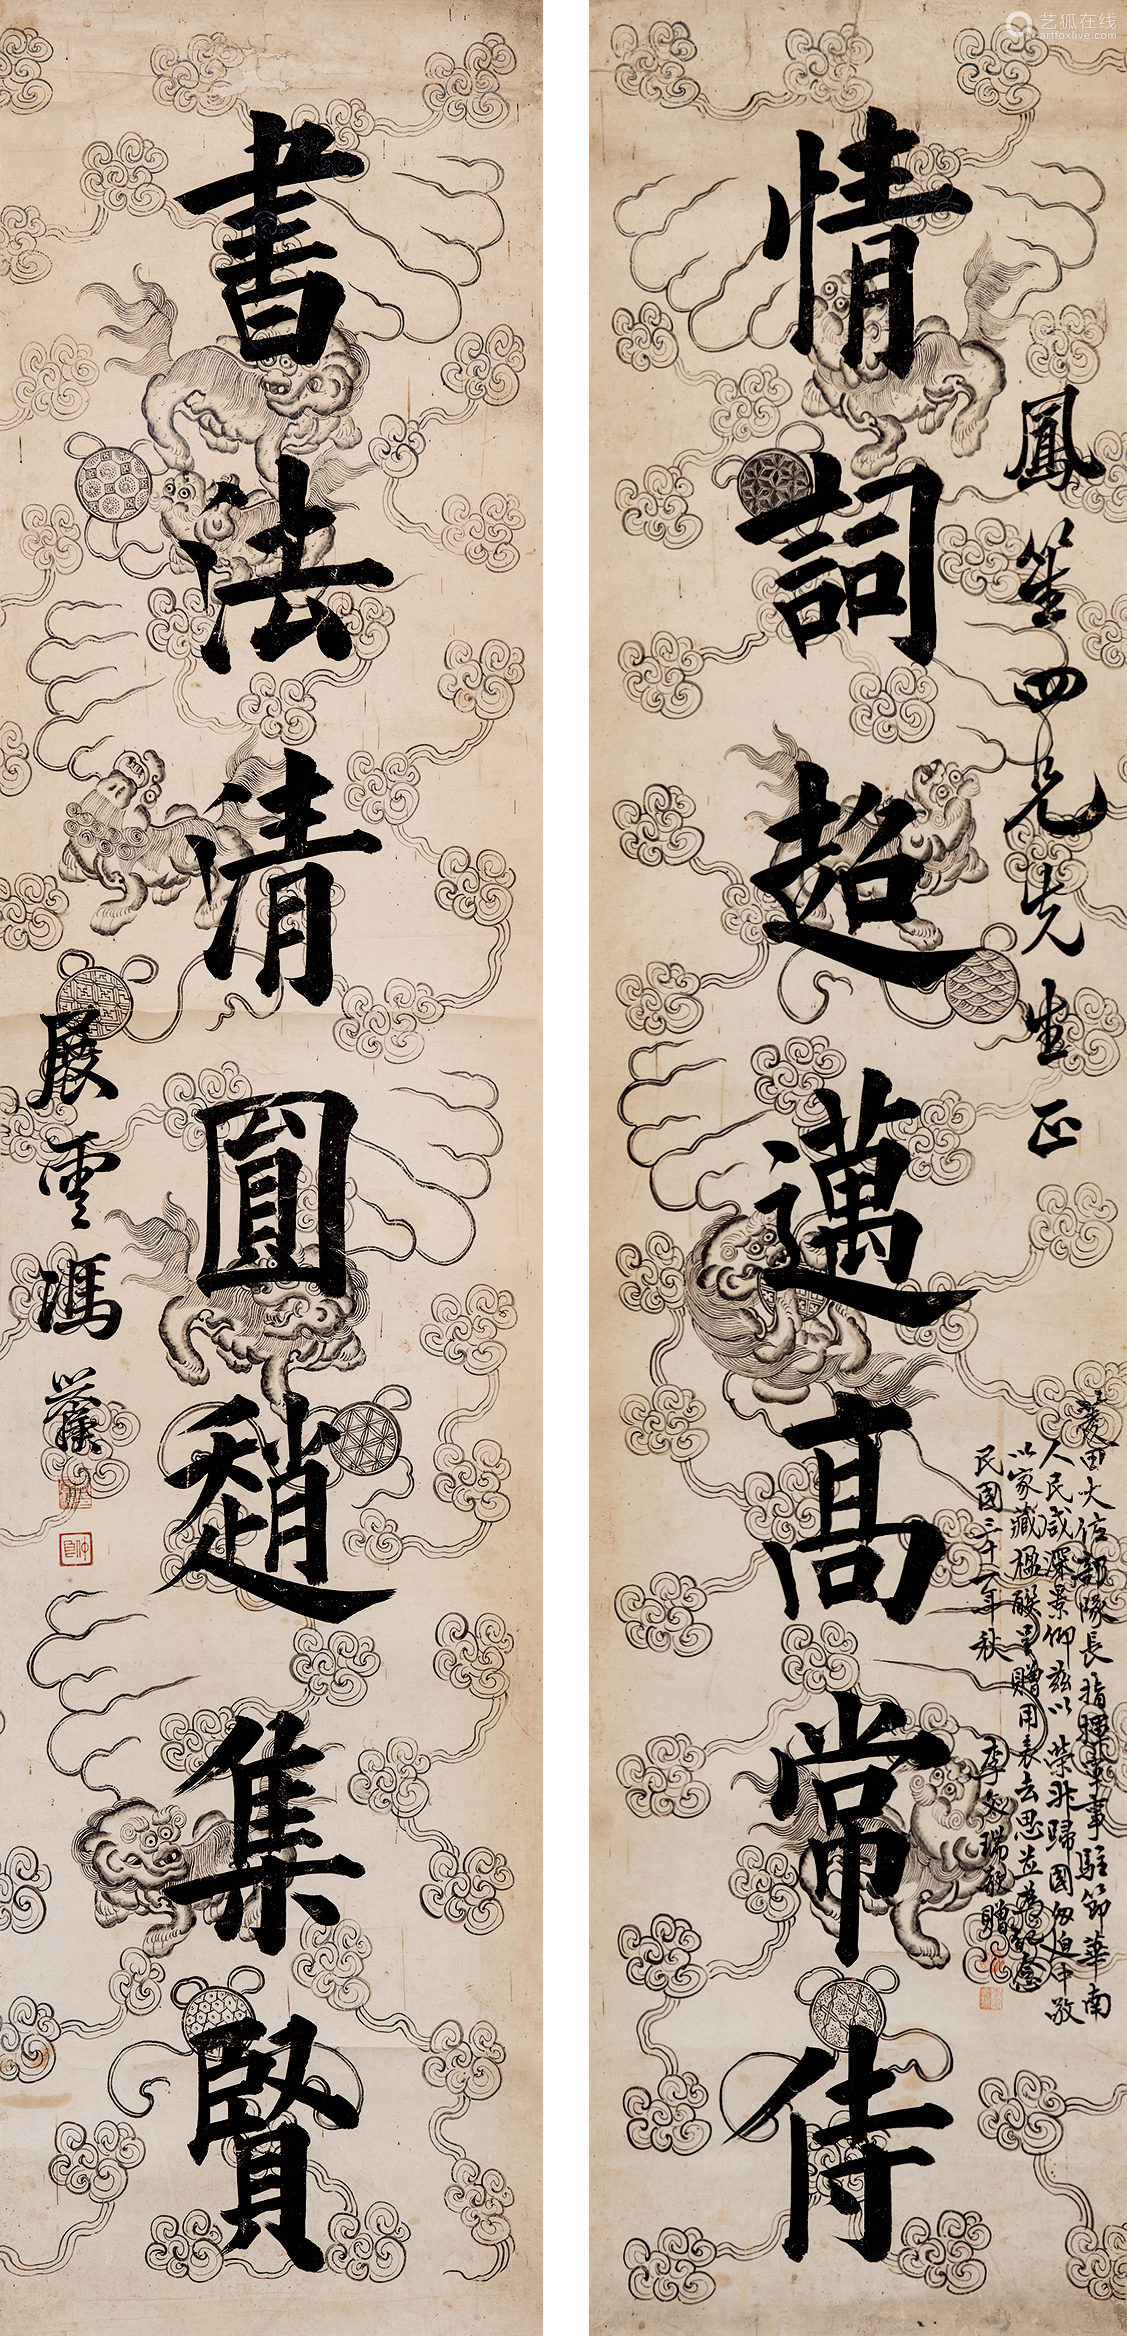 情詞超邁高常侍
鳳笙四兄先生正
菱田大佐部隊長指揮軍事駐節華南
人民咸深景仰茲以榮升歸國匆迫中敬
以家藏楹聯呈贈用表去思並為紀念
民國三十一年秋
瑞敬贈
書法清圓趙集賢
展雲馮譽驥
艺狐在线
www.artfoxlive.com